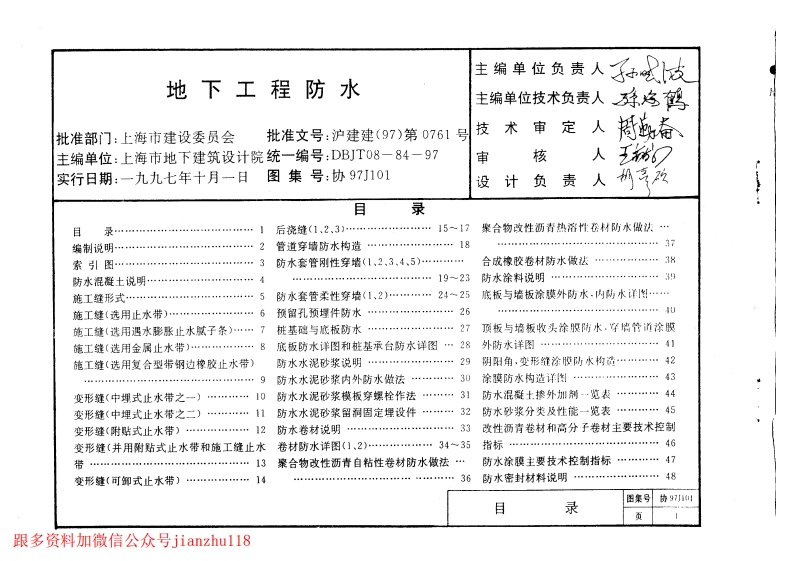 地下工程防水
批准部门:上海市建设委员会 批准文号:沪建建(97)第0761号
主编单位:上海市地下建筑设计院 统一编号:DBJT08-84-97
实行日期:一九九七年十月一日 图集号:协97J101
主编单位负责人
主编单位技术负责人
技术审定人
审核人
设计负责人
目 录
目 录…………………………… 1
编制说明…………………………… 2
索引图…………………………… 3
防水混凝土说明…………………… 4
施工缝形式………………………… 5
施工缝(选用止水带)……………… 6
施工缝(选用遇水膨胀止水腻子条)…… 7
施工缝(选用金属止水带)………… 8
施工缝(选用复合型带钢边橡胶止水带)
…………………………… 9
变形缝(中埋式止水带之一)……… 10
变形缝(中埋式止水带之二)……… 11
变形缝(附贴式止水带)…………… 12
变形缝(并用附贴式止水带和施工缝止水
带…………………………… 13
变形缝(可卸式止水带)…………… 14
后浇缝(1,2,3)………………… 15~17
管道穿墙防水构造………………… 18
防水套管刚性穿墙(1,2,3,4,5)………
…………………………… 19~23
防水套管柔性穿墙(1,2)………… 24~25
预留孔预埋件防水………………… 26
桩基础与底板防水………………… 27
底板防水详图和桩基承台防水详图… 28
防水水泥砂浆说明………………… 29
防水水泥砂浆内外防水做法……… 30
防水水泥砂浆模板穿螺栓作法…… 31
防水水泥砂浆留洞固定埋设件…… 32
防水卷材说明……………………… 33
卷材防水详图(1,2)…………… 34~35
聚合物改性沥青自粘性卷材防水做法…
…………………………… 36
聚合物改性沥青热溶性卷材防水做法…
…………………………… 37
合成橡胶卷材防水做法…………… 38
防水涂料说明……………………… 39
底板与墙板涂膜外防水,内防水详图……
…………………………… 40
顶板与墙板收头涂膜防水,穿墙管道涂膜
外防水详图………………………… 41
阴阳角,变形缝涂膜防水构造……… 42
涂膜防水构造详图………………… 43
防水混凝土掺外加剂一览表……… 44
防水砂浆分类及性能一览表……… 45
改性沥青卷材和高分子卷材主要技术控制
指标…………………………… 46
防水涂膜主要技术控制指标……… 47
防水密封材料说明………………… 48
目 录
图集号 协97J101
页 1
跟多资料加微信公众号jianzhu118